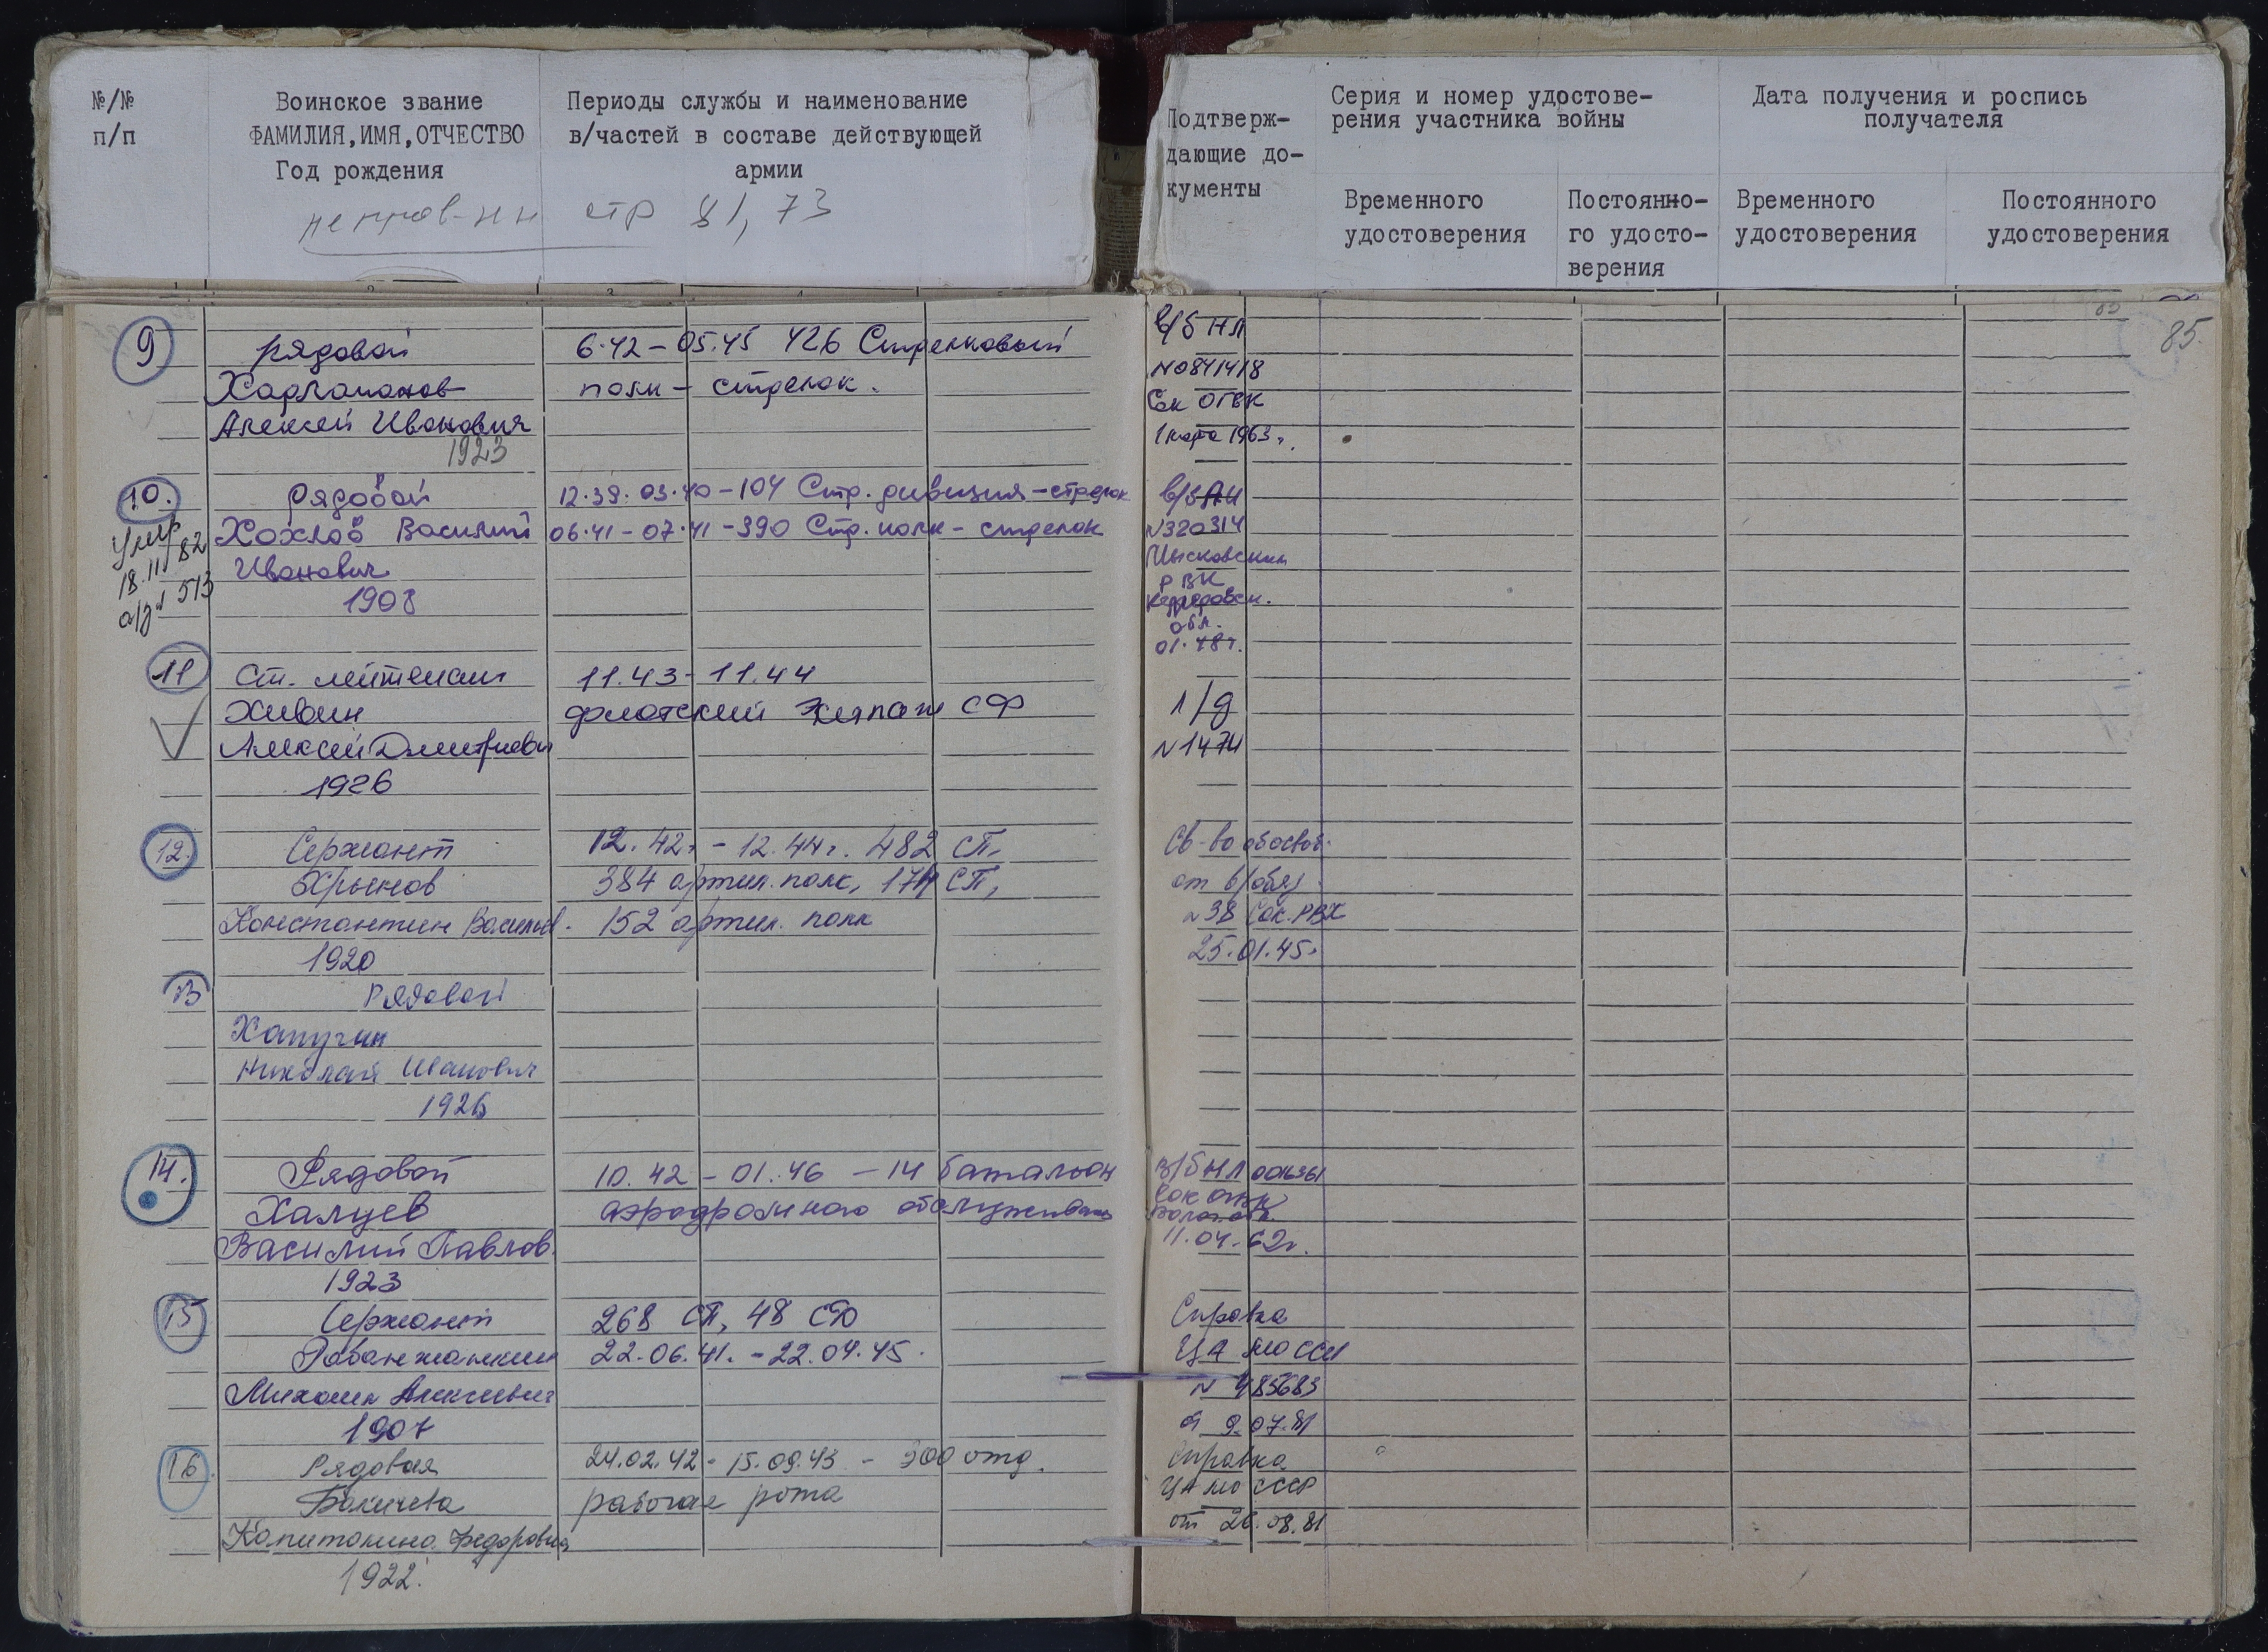 №/№
п/п
Воинское звание
ФАМИЛИЯ,ИМЯ,ОТЧЕСТВО
Год рождения
Периоды службы и наименование
в/частей в составе действующей
армии
стр 81, 73
Подтверж-
дающие до-
кументы
Серия и номер удостове-
рения участника войны
Временного
удостоверения
Постоянно-
го удосто-
верения
Дата получения и роспись
получателя
Временного
удостоверения
Постоянного
удостоверения
85.
9
рядовой
Харламанов
Алексей Иванович
1923
6.42 - 05.45 426 Стрелковый
полк - стрелок.
в/б НЛ
N0841418
Сок ОГВК
1 марта 1963г.
10.
Умер
18.11.82
а/з N 513
рядовой
Хохлов Василий
Иванович
1908
12.39. 03.40 - 104 Стр. дивизия - стрелок
06.41 - 07.41 - 390 Стр. полк - стрелок
N320314
Мысковским
РВК
Кемеровск.
обл.
01.48г.
11
Ст. лейтенант
Хивин
Алексей Дмитриевич
1926
11.43 - 11.44
флотский экипаж СФ
л/д
N1474
12.
Сержант
Хрынов
Константин Васильев.
1920
12.42г. - 12.44г. 482 СП,
384 артил. полк, 174 СП,
152 артил. полк
Св-во освоб.
от в/обяз.
N38 Сок. РВК
25.01.45г.
13
Рядовой
Хапугин
Николай Иванович
1926
14.
Рядовой
Халцев
Василий Павлов.
1923
10.42 - 01.46 - 14 батальон
аэродромного обслуживания
в/б НЛ 0016361
Сок ОГВК
Волог. обл.
11.04.62г.
15
Сержант
Михаил Алексеевич
1907
268 СП, 48 СД
22.06.41. - 22.04.45.
Справка
ЦА МО СССР
N 485683
от 9.07.81
16.
Рядовая
Бакичева
Капитолина Федоровна
1922.
24.02.42 - 15.09.43 - 300 отд.
рабочая рота
Справка
ЦА МО СССР
от 26.08.81